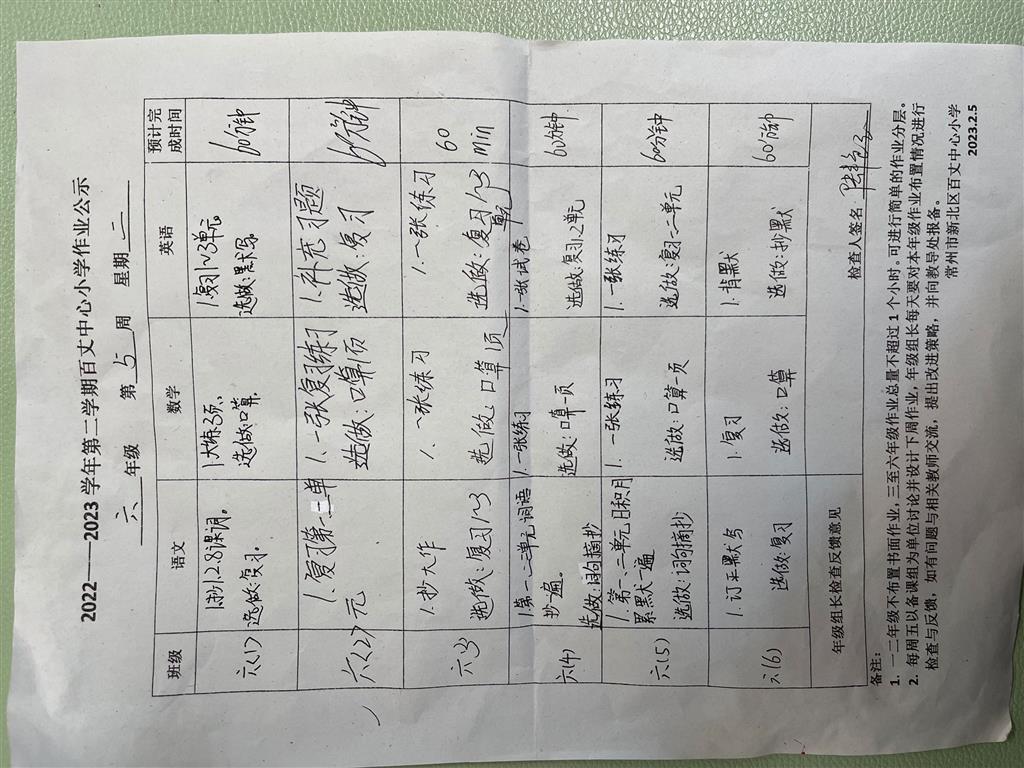 2022——2023 学年第二学期百丈中心小学作业公示
六 年级 第 5 周 星期 二
班级 语文 数学 英语 预计完成时间
六(1) 1抄1.2.8课词。 选做:复习。 1大练3页、 选做:口算 1复习1~3单元 选做:默写 60分钟
六(2) 1.复习第一二单元 1.一张复习练习 选做:口算1页 1.补充习题 选做:复习 60分钟
六(3) 1.抄大作 选做:复习1~3 1.一张练习 选做:口算1页 1.一张练习 选做:复习1~3单元 60 min
六(4) 1第一、二单元词语抄一遍。 选做:词句摘抄 1.一张练习 选做:口算一页 1.一张试卷 选做:复习1、2单元 60分钟
六(5) 1.第一、二单元日积月累默一遍 选做:词句摘抄 1.一张练习 选做:口算一页 1.一张练习 选做:复习一二单元 60分钟
六(6) 1.订正默写 选做:复习 1.复习 选做:口算 1.背默 选做:抄默 60分钟
年级组长检查反馈意见 检查人签名:
备注:
1. 一二年级不布置书面作业,三至六年级作业总量不超过 1 个小时。可进行简单的作业分层。
2. 每周五以备课组为单位讨论并设计下周作业,年级组长每天要对本年级作业布置情况进行
检查与反馈,如有问题与相关教师交流,提出改进策略,并向教导处报备。
常州市新北区百丈中心小学
2023.2.5